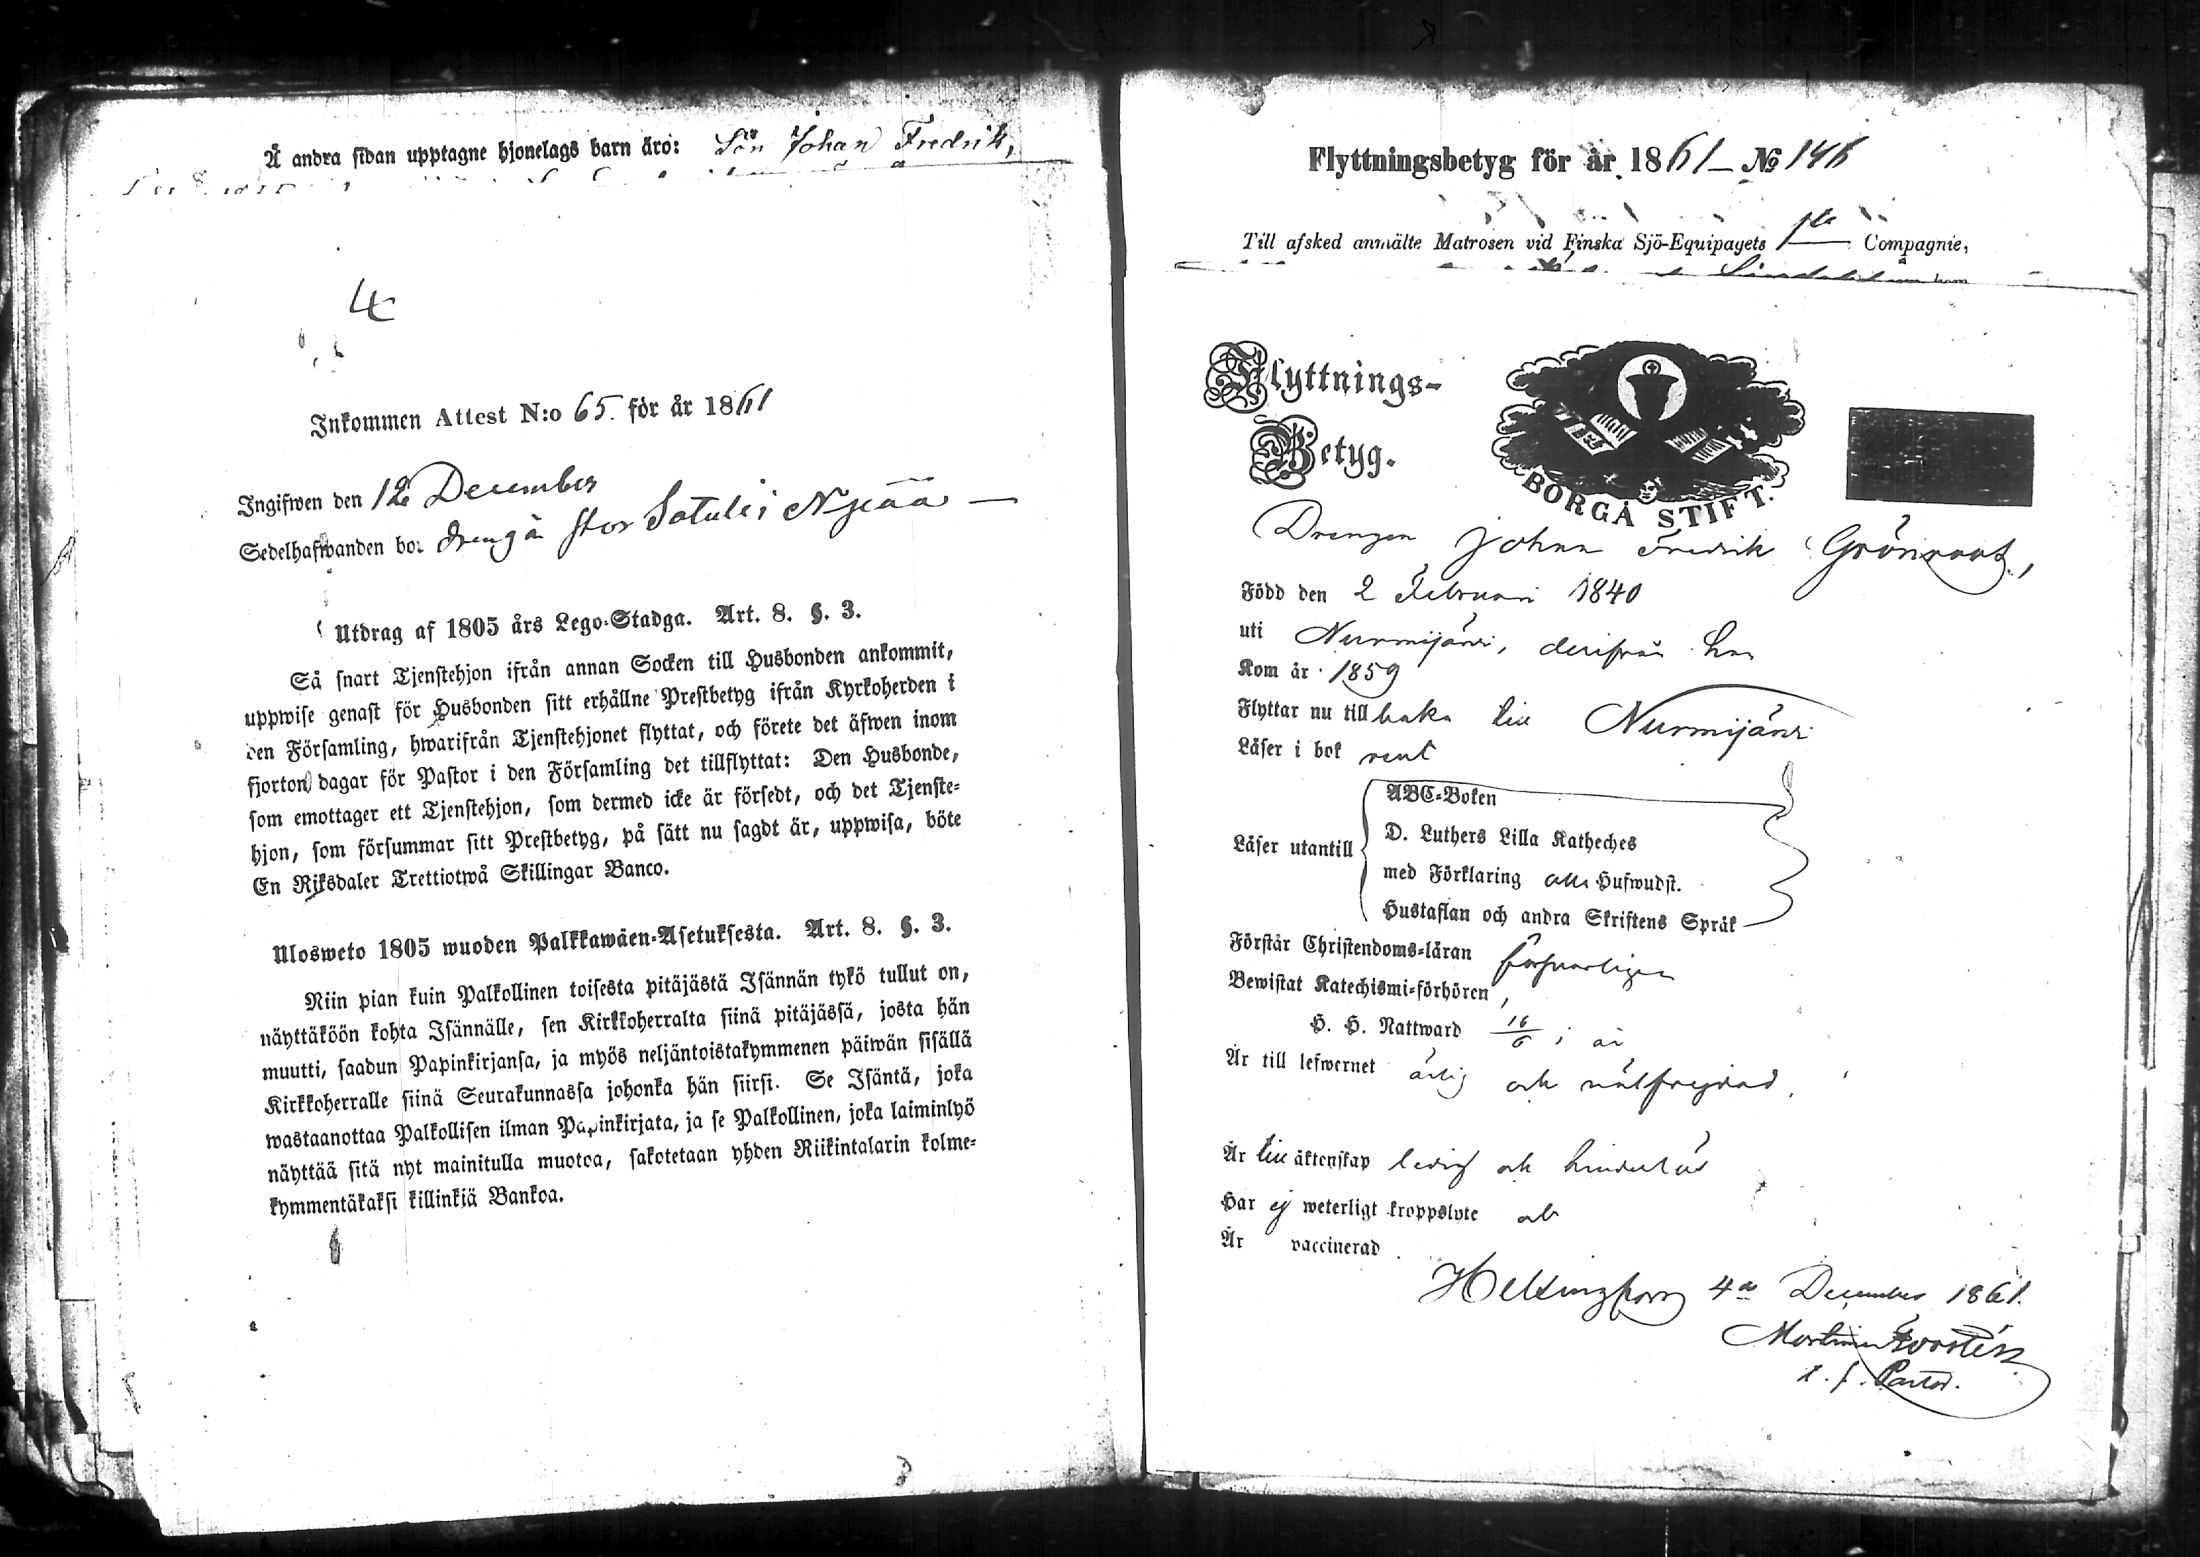 Å andra sidan upptagne hjonelags barn äro: Sön Johan Fredrik,
4
Inkommen Attest N:o 65. för år 1861
Ingifwen den 12 December
Sedelhafwanden bor dreng å Stor Satulis Nyrää
Utdrag af 1805 års Lego-Stadga. Art. 8. §. 3.
Så snart Tjenstehjon ifrån annan Socken till Husbonden ankommit,
uppwise genast för Husbonden sitt erhållne Prestbetyg ifrån Kyrkoherden i
den Församling, hwarifrån Tjenstehjonet flyttat, och förete det äfwen inom
fjorton dagar för Pastor i den Församling det tillflyttat: Den Husbonde,
som emottager ett Tjenstehjon, som dermed icke är försedt, och det Tjenste-
hjon, som försummar sitt Prestbetyg, på sätt nu sagdt är, uppwisa, böte
En Riksdaler Trettiotwå Skillingar Banco.
Ulosweto 1805 wuoden Palkkawäen-Asetuksesta. Art. 8. §. 3.
Niin pian kuin Palkollinen toisesta pitäjästä Isännän tykö tullut on,
näyttäköön kohta Isännälle, sen Kirkkoherralta siinä pitäjässä, josta hän
muutti, saadun Papinkirjansa, ja myös neljäntoistakymmenen päiwän sisällä
Kirkkoherralle siinä Seurakunnassa johonka hän siirsi. Se Isäntä, joka
wastaanottaa Palkollisen ilman Papinkirjata, ja se Palkollinen, joka laiminlyö
näyttää sitä nyt mainitulla muotoa, sakotetaan yhden Riikintalarin kolme-
kymmentäkaksi killinkiä Bankoa.
Flyttningsbetyg för år 1861 — No 146
Till afsked anmälte Matrosen vid Finska Sjö-Equipagets 1sta Compagnie,
Flyttnings-
Betyg.
BORGÅ STIFT.
Drengen Johan Fredrik Grönroos,
Född den 2 Februari 1840
uti Nurmijärvi, derifrån han
Kom år 1859
Flyttar nu till baka till Nurmijärvi
Läser i bok rent
Läser utantill
ABC-Boken
D. Luthers Lilla Katheches
med Förklaring alla Hufwudst.
Hustaflan och andra Skriftens Språk
Förstår Christendoms-läran försvarligen
Bewistat Katechismi-förhören,
H. H. Nattward 16/6 i år
Är till lefwernet ärlig och välfrejdad.
Är till äktenskap ledig och hinderlös
Har ej weterligt kroppslyte och
Är vaccinerad
Helsingfors 4de December 1861.
t. f. Pastor.